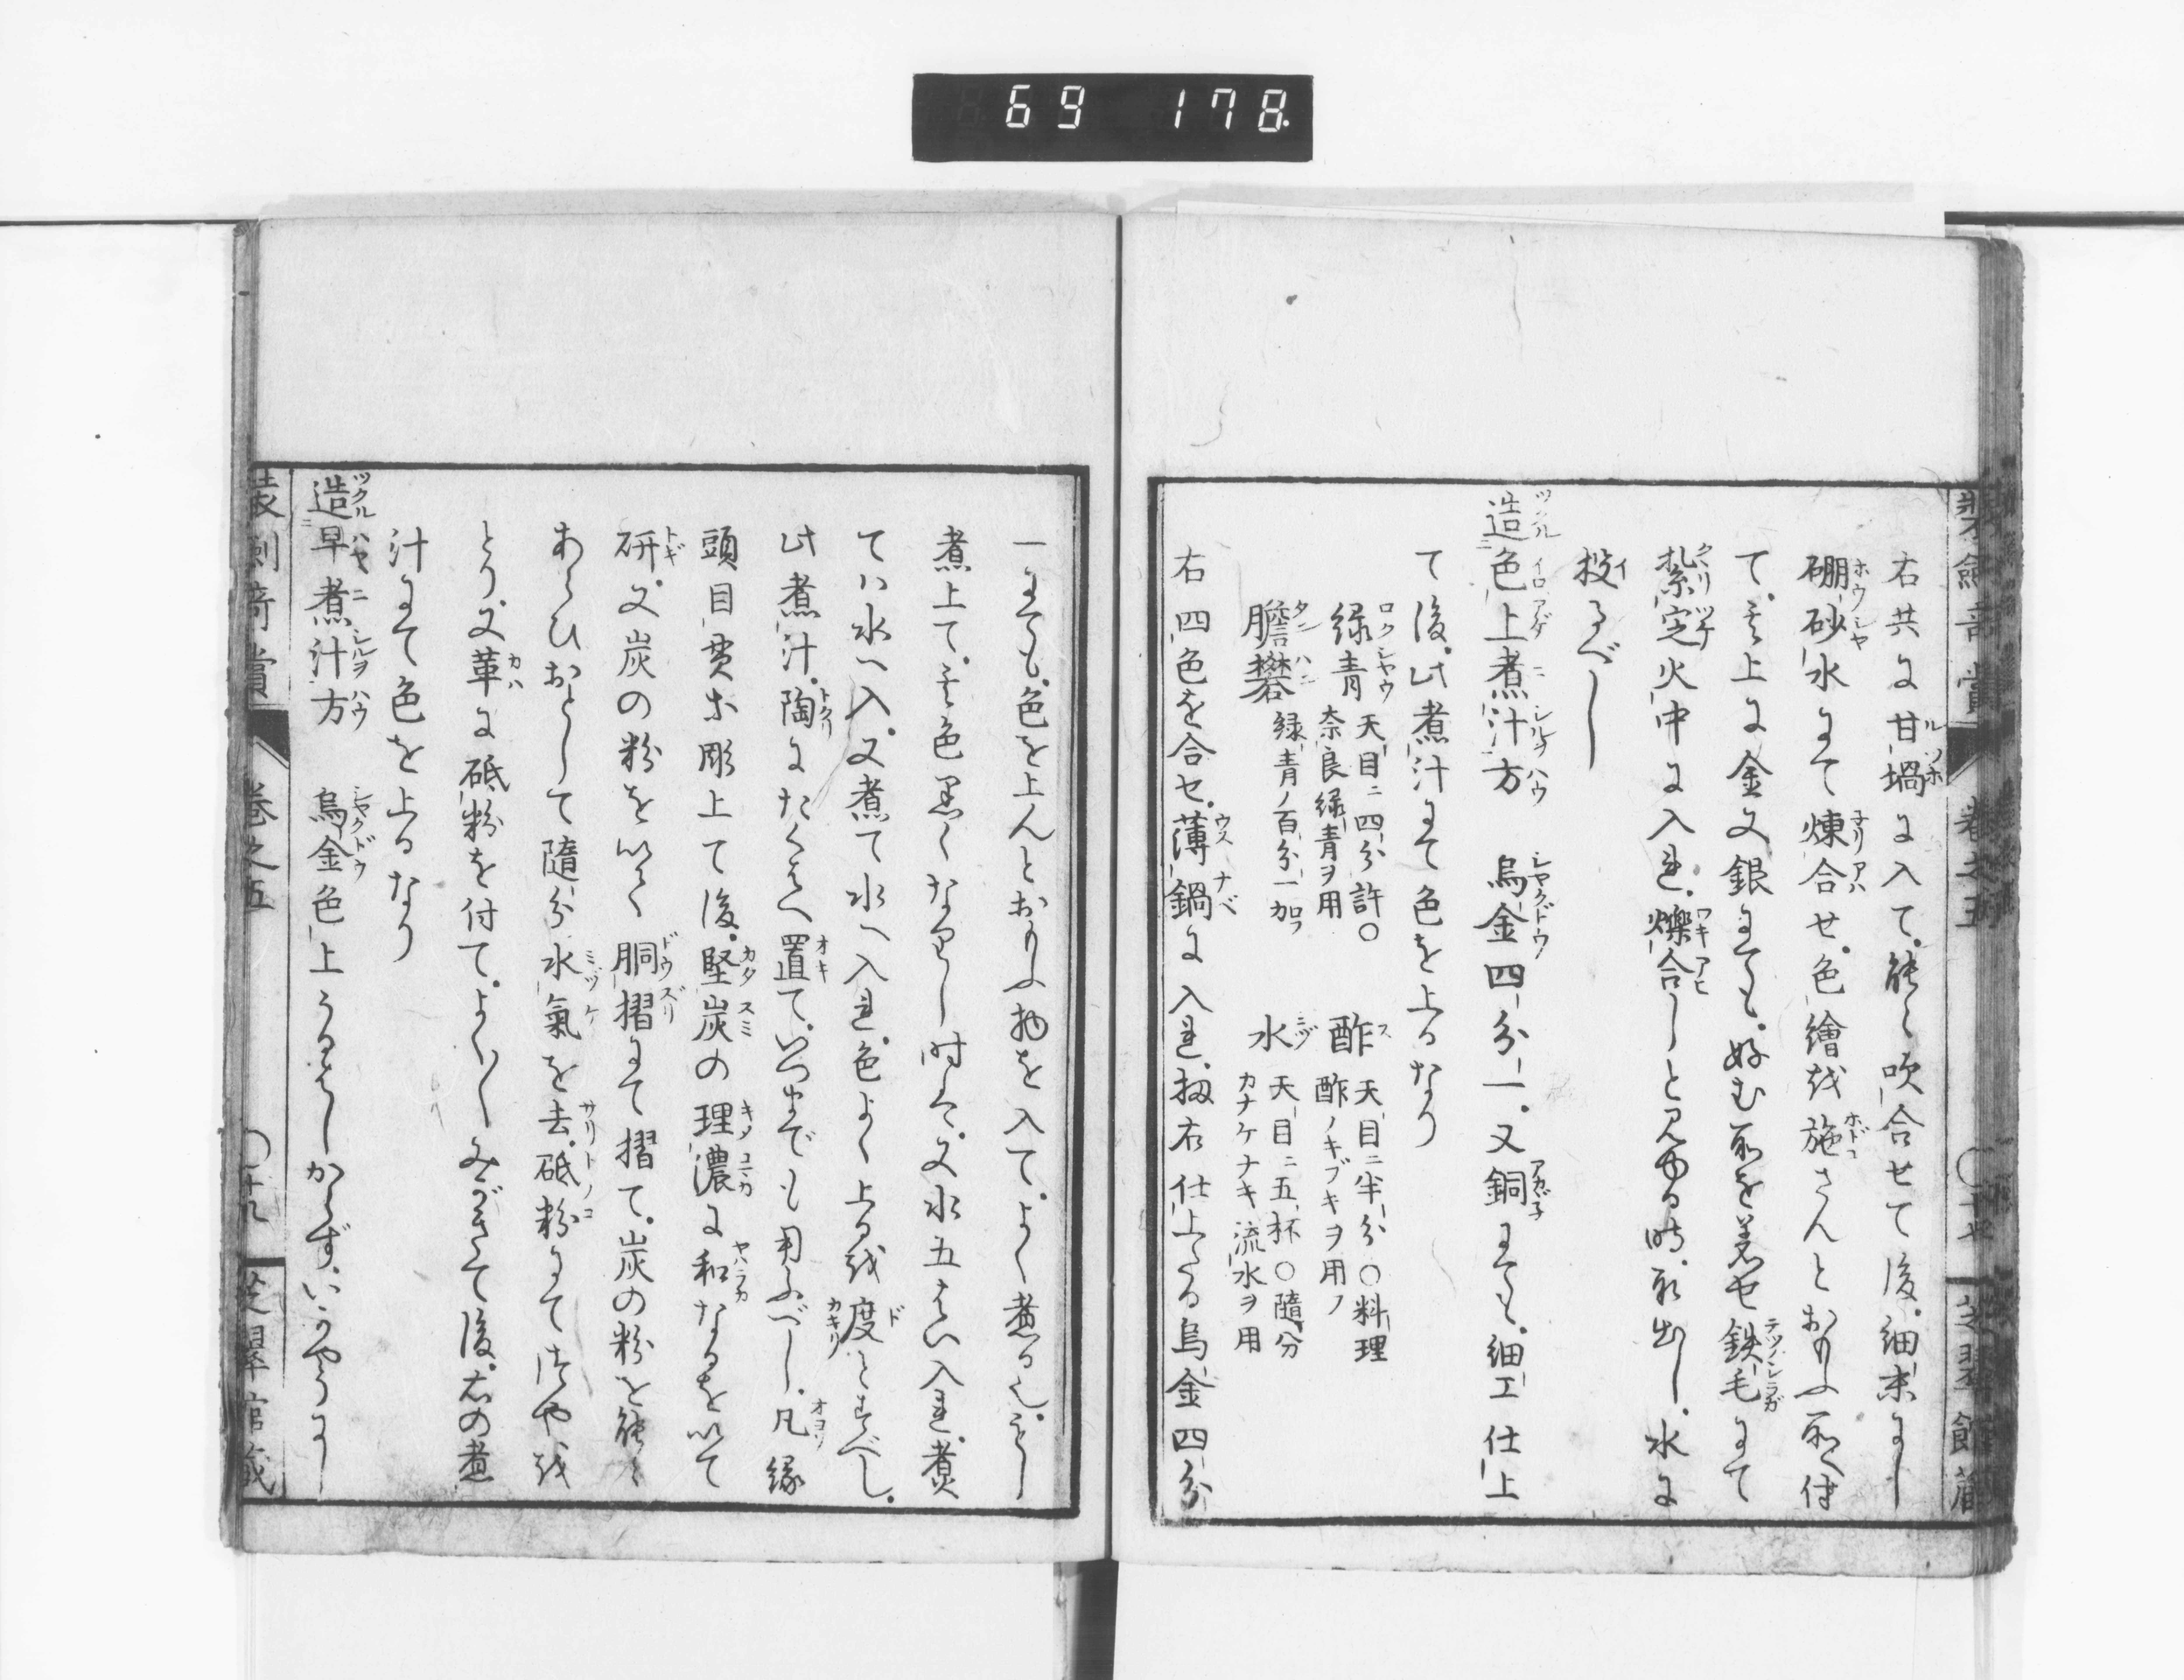 69 178
右共に甘堝に入て、能々吹合せて後、細末にし
硼砂水にて煉合せ、色繪を施さんとおもふ所へ付
て、其上に金又銀にても、好む所を着せ鉄毛にて
紮定火中に入れ、爍合しと見ゆる時、取出し、水に
投るべし
造色上煮汁方 烏金四分一、又銅にても、細工仕上
て後、此煮汁にて色を上るなり
緑青 天目ニ四分許○奈良緑青ヲ用
酢 天目ニ半分○料理酢ノキブキヲ用フ
膽礬 緑青ノ百分一加フ
水 天目ニ五杯○隨分カナケナキ流水ヲ用
右四色を合セ、薄鍋に入れ、扨右仕上たる烏金四分
一にても、色を上んとおもふ物を入て、よく煮る也、
煮上て、其色黒くなりし時は、又水五はい入れ、煮
ては水へ入、又煮て水へ入れ、色よく上るを度とすべし、
此煮汁、陶にたくはへ置て、いつまでも用ふべし、凡縁
頭目貫小彫上て後、堅炭の理濃に和なるを以て
研、又炭の粉を以て胴摺にて摺て、炭の粉を能々
あらひおとして隨分水氣を去、砥粉にてつやを
とり、又革に砥粉を付て、よくよくみがきて後、右の煮
汁にて色を上るなり
造早煮汁方 烏金色上うるはしからず、いかやうにし
装劍奇賞 卷之五 芝翠館藏